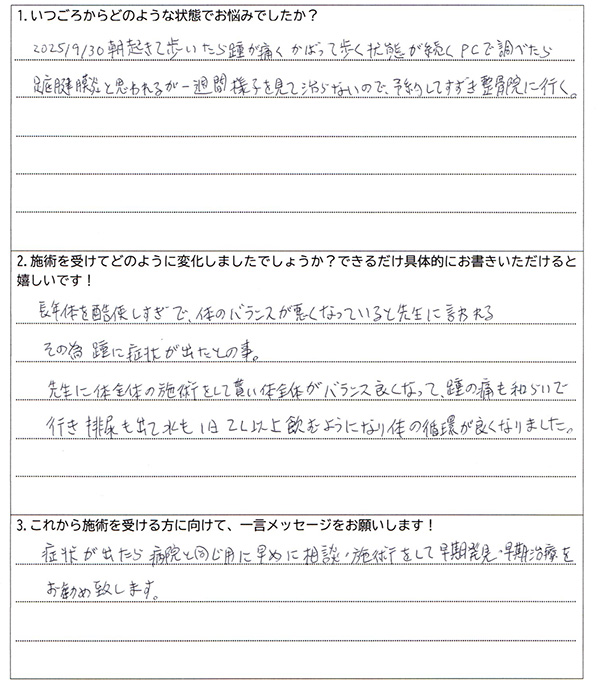 1. いつごろからどのような状態でお悩みでしたか？
2025/9/30 朝起きて歩いたら踵が痛く かばって歩く状態が続く PCで調べたら
足底腱膜炎と思われるが一週間様子を見て治らないので、予約してすずき整骨院に行く。
2. 施術を受けてどのように変化しましたでしょうか？できるだけ具体的にお書きいただけると
嬉しいです！
長年体を酷使しすぎで、体のバランスが悪くなっていると先生に言われる
その為 踵に症状が出たとの事。
先生に体全体の施術をして貰い体全体がバランス良くなって、踵の痛も和らいで
行き 排尿も出て水も1日2L以上飲むようになり体の循環が良くなりました。
3. これから施術を受ける方に向けて、一言メッセージをお願いします！
症状が出たら病院と同じ用に早めに相談・施術をして早期発見・早期治療を
お勧め致します。